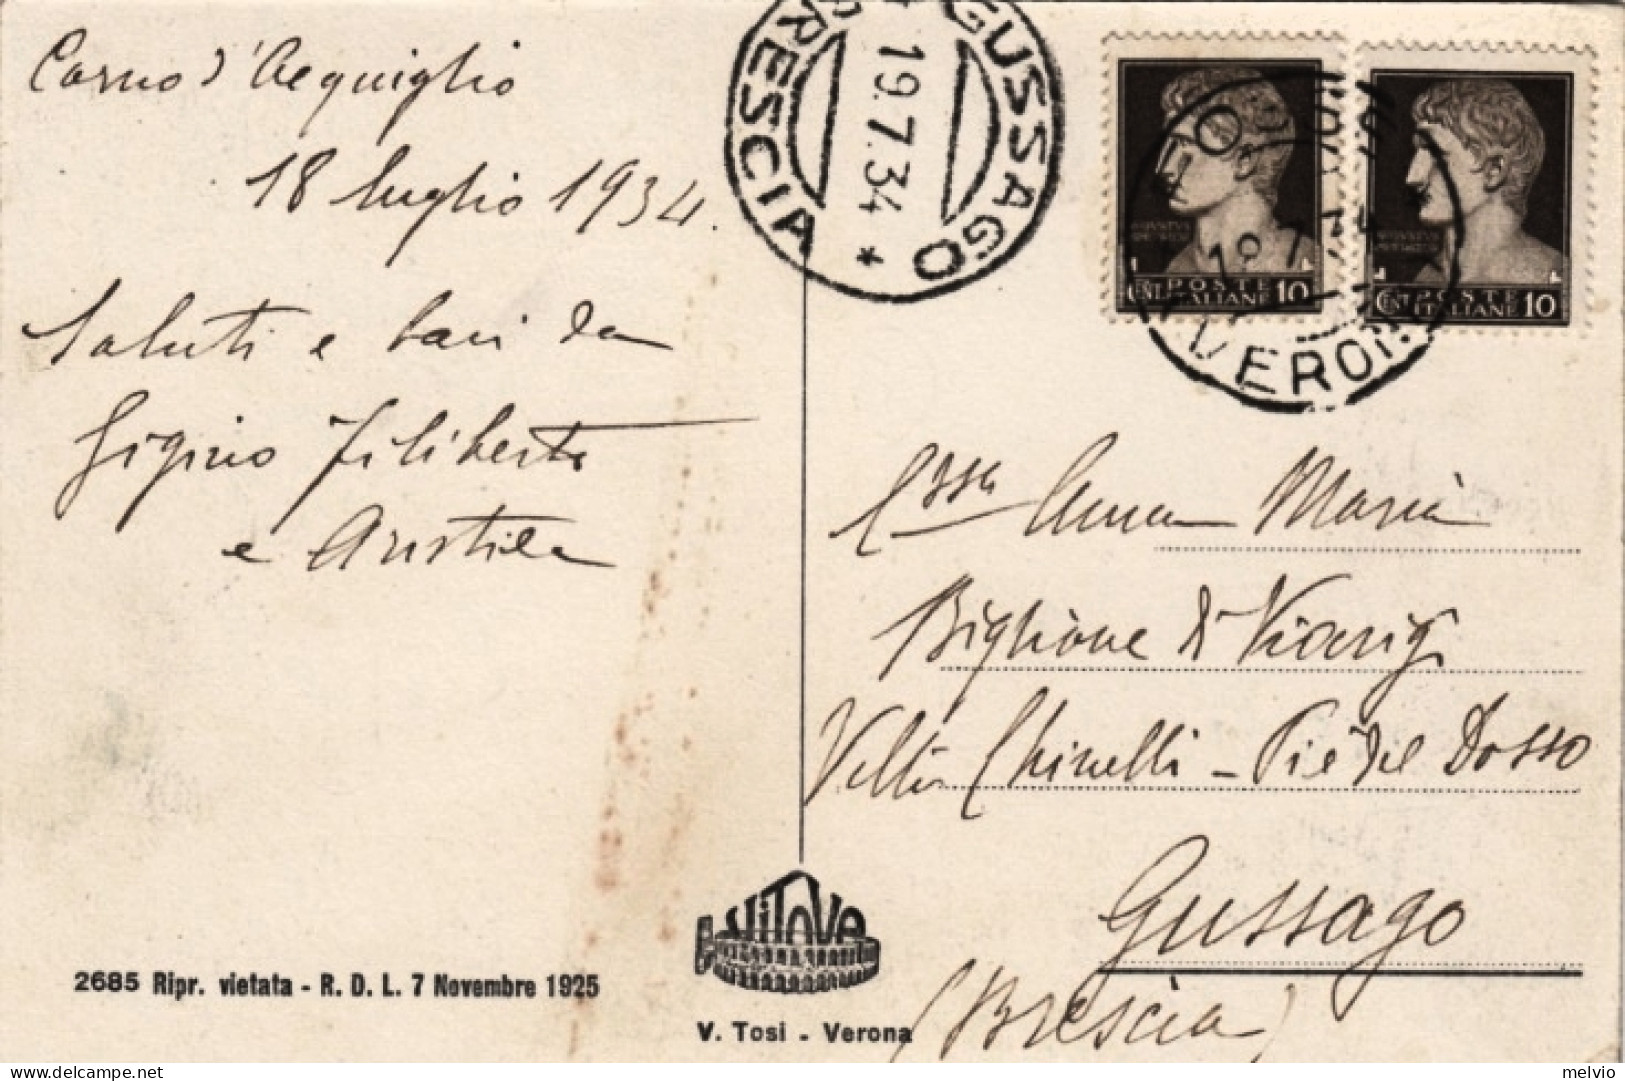 Corno d'Acquiglio
18 luglio 1934.
Saluti e baci da
Gigino Filiberto
e
BRESCIA * GUSSAGO *
19.7.34
POSTE ITALIANE
CENT 10
POSTE ITALIANE
CENT 10
VERONA
C.ssa Anna Maria
Biglione di Viarigi
Villa Chinelli - Piè del Dosso
Gussago
(Brescia)
2685 Ripr. vietata - R. D. L. 7 Novembre 1925
VITOVE
V. Tosi - Verona
delcampe.net
melvio